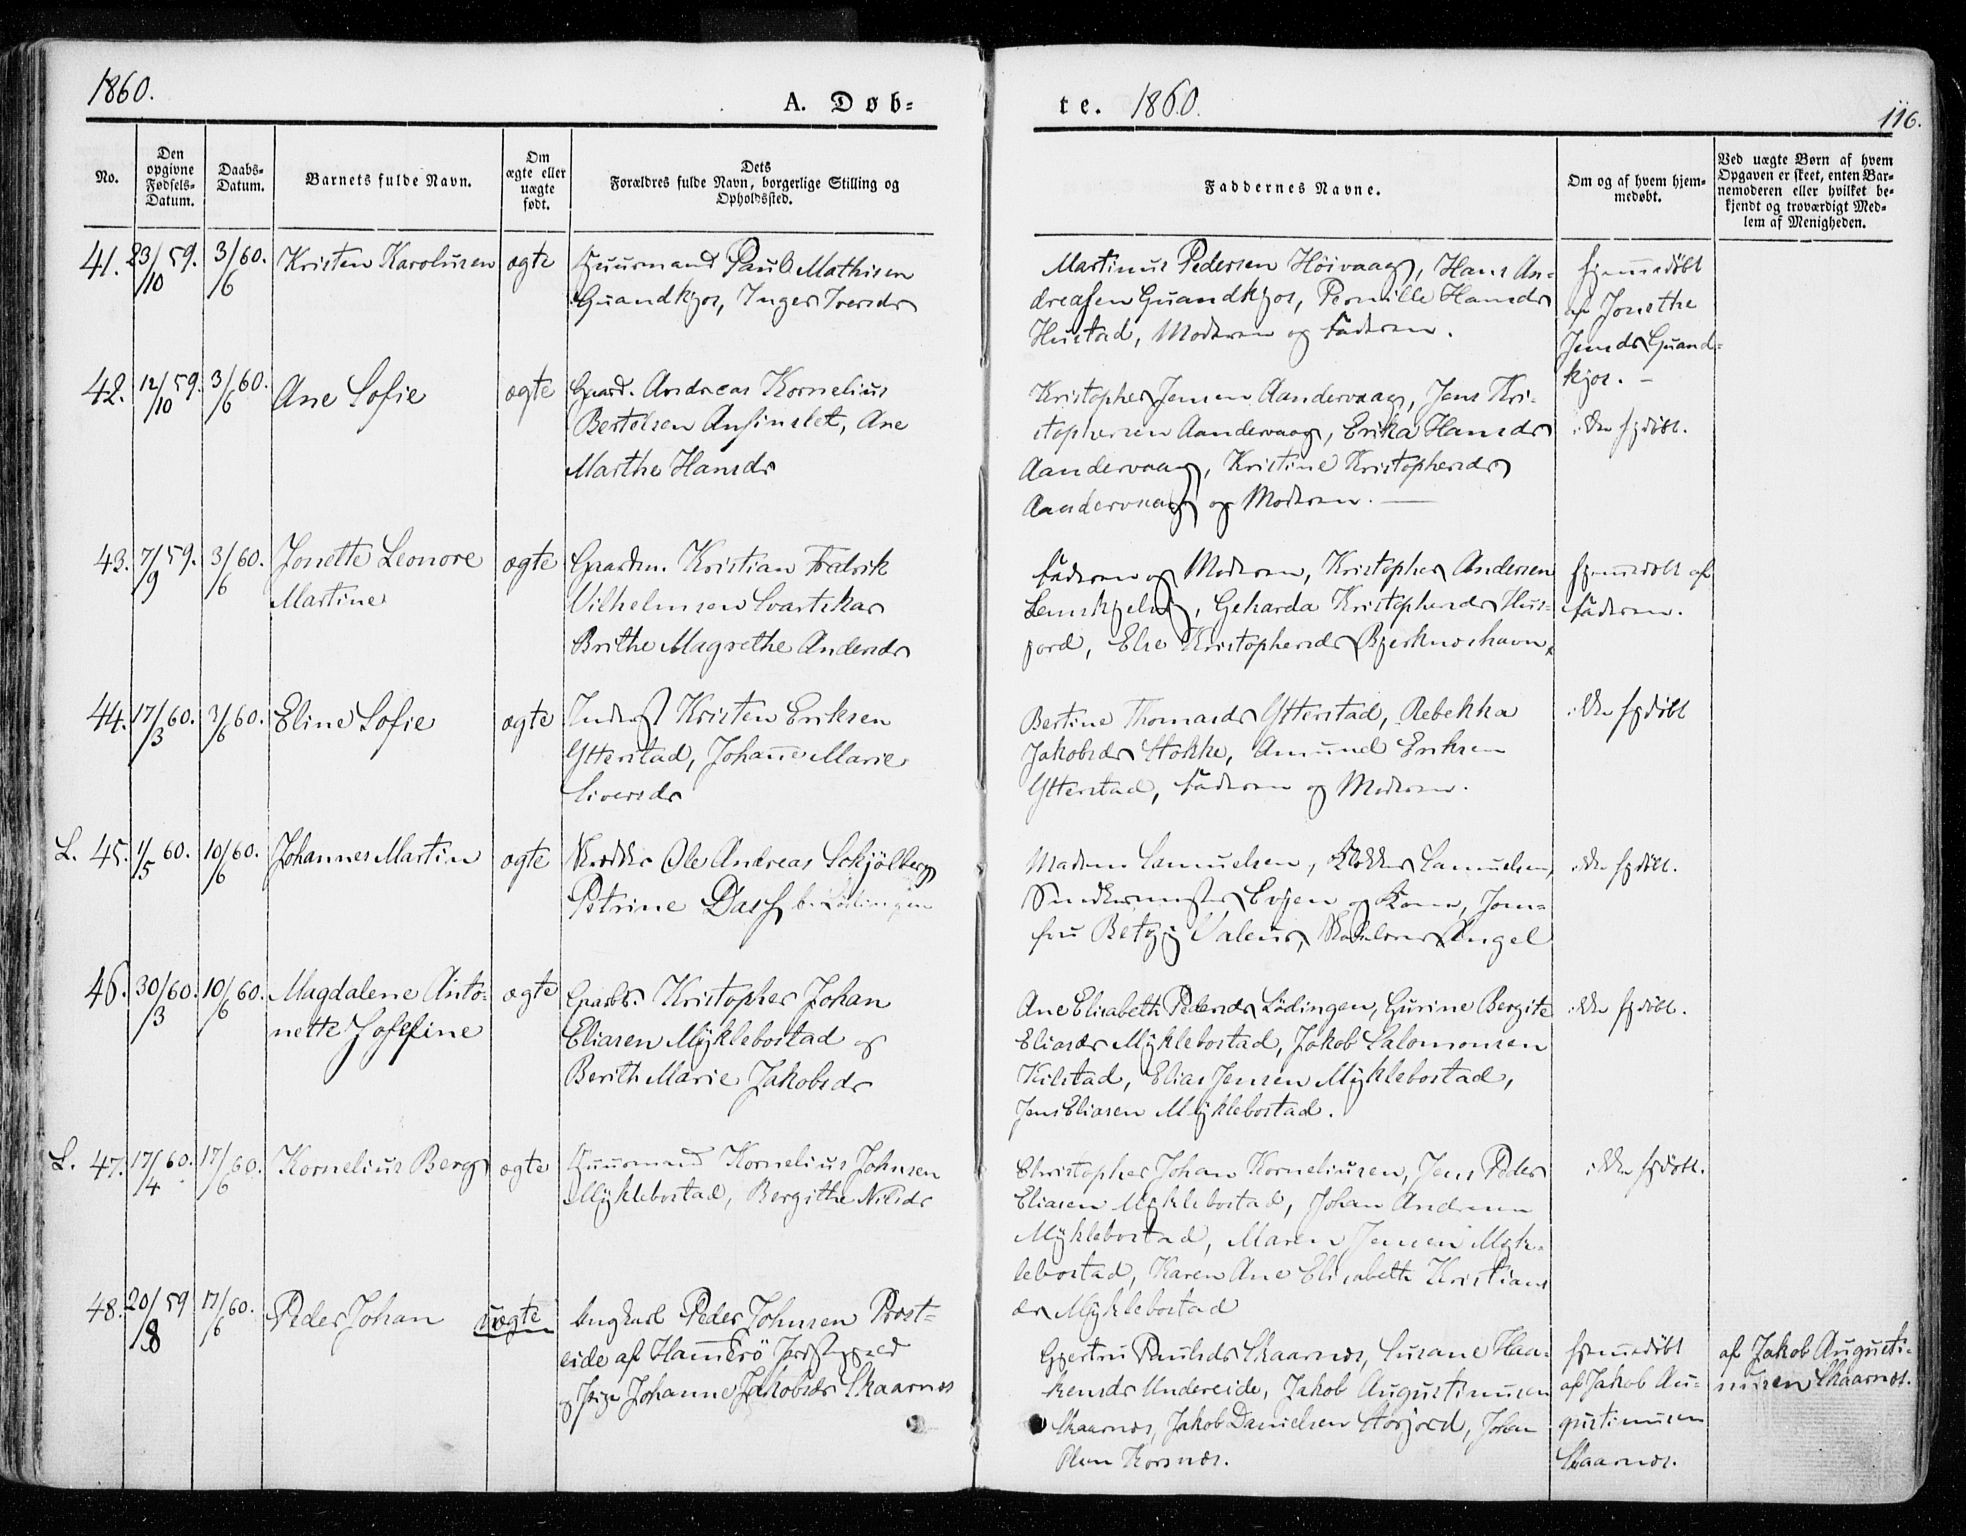 1860.
A. Døb-
te. 1860.
116.
No.
Den opgivne Fødsels-Datum.
Daabs-Datum.
Barnets fulde Navn.
Om ægte eller uægte født.
Dets Forældres fulde Navn, borgerlige Stilling og Opholdssted.
Faddernes Navne.
Om og af hvem hjem-medøbt.
Ved uægte Børn af hvem
Opgaven er skeet, enten Bar-
nemoderen eller hvilket be-
kjendt og troværdigt Med-
lem af Menigheden.
41. 23/10 59. 3/6 60. Kristen Karolusen ægte Huusmand Paul Mathisen
Guandkjos, Inger Iversdr
Martinus Pedersen Höivaag, Hans An-
dreasen Guandkjos, Pernille Hansdr
Hustad, Moderen og Faderen.
hjemmedöbt
af Jonethe
Jensdr Guand-
kjos. –
42. 12/10 59. 3/6 60. Ane Sofie ægte Gaard. Andreas Kornelius
Bertelsen Ansinslet, Ane
Marthe Hansdr
Kristopher Jensen Aandervaag, Jens Kri-
stophersen Aandervaag, Erika Hansdr
Aandervaag, Kristine Kristophersdr
Aandervaag og Moderen. —
ikke hjdöbt.
43. 7/9 59. 3/6 60. Jonette Leonore
Martine
ægte Gaardm. Kristian Fredrik
Vilhelmsen Svartskar
Brithe Magrethe Andersdr
Faderen og Moderen, Kristopher Andersen
Gerharda Kristophersdr Hus-
jord, Else Kristophersdr
hjemmedöbt af
Faderen.
44. 17/3 60. 3/6 60. Eline Sofie ægte Inderst Kristen Eriksen
Ytterstad, Johanne Marie
Siversdr
Bertine Thomasdr Ytterstad, Rebekka
Jakobsdr Stokke, Amund Eriksen
Ytterstad, Faderen og Moderen.
ikke hjdöbt
L. 45. 1/5 60. 10/6 60. Johannes Martin ægte Skrædder Ole Andreas Schjölberg
Petrine Dass b. Lödingen
Madam Samuelsen, Klokker Samuelsen,
Snedkermester Evjen og Kone, Jom-
fru Betzy Angel
ikke hjdöbt.
46. 30/3 60. 10/6 60. Magdalene Anto-
nette Josefine
ægte Gaardb. Kristopher Johan
Eliasen Myklebostad og
Berith Marie Jakobsdr
Ane Elisabeth Pedersdr Lödingen, Gurine Bergite
Eliasdr Myklebostad, Jakob Salomonsen
Kilstad, Elias Jensen Myklebostad,
Jens Eliasen Myklebostad.
ikke hjdöbt.
L. 47. 17/4 60. 17/6 60. Kornelius Berg ægte Huusmand Kornelius Johnsen
Myklebostad, Bergithe Nilsdr
Christopher Johan Korneliussen, Jens Peder
Eliasen Myklebostad, Johan Andreas
Myklebostad, Maren Jensen Myk-
lebostad, Karen Ane Elisabeth Kristians
dr Myklebostad
ikke hjdöbt.
48. 20/8 59 17/6 60. Peder Johan uægte Ungkarl Peder Johnsen Prest-
eide af Hammerö Præstegjeld
og Pige Johanne Jakobsdr Skaarnæs
Gjertru Paulsdr Skaarnæs, Susane Haa-
kensdr Undereide, Jakob Augustinusen
Skaarnæs, Jakob Danielsen Storjord, Johan
Olsen Korsnæs.
hjemmedöbt
af Jakob Au-
gustinusen
Skaarnæs.
af Jakob Augusti-
nusen Skaarnæs.